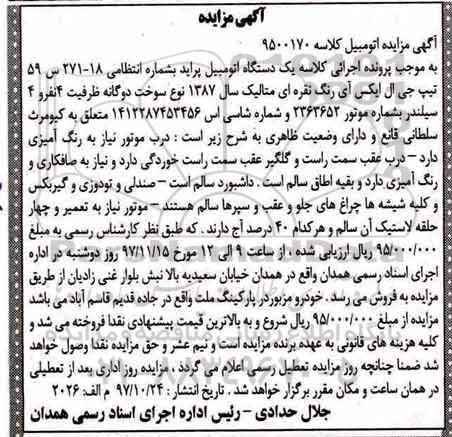 آگهی مزایده
آگهی مزایده اتومبیل کلاسه ۹۵۰۰۱۷۰
به موجب پرونده اجرائی کلاسه یک دستگاه اتومبیل پراید بشماره انتظامی ۱۸-۲۷۱ س ۵۹
تیپ جی ال ایکس آی رنگ نقره ای متالیک سال ۱۳۸۷ نوع سوخت دوگانه ظرفیت ۴نفرو ۴
سیلندر بشماره موتور ۲۳۶۳۶۵۲ و شماره شاسی اس ۱۴۱۲۲۸۷۴۵۳۴۵۶ متعلق به کیومرث
سلطانی قانع و دارای وضعیت ظاهری به شرح زیر است : درب موتور نیاز به رنگ آمیزی
دارد – درب عقب سمت راست و گلگیر عقب سمت راست خوردگی دارد و نیاز به صافکاری و
رنگ آمیزی دارد و بقیه اطاق سالم است . داشبورد سالم است – صندلی و تودوزی و گیربکس
و کلیه شیشه ها چراغ های جلو و عقب و سپرها سالم هستند – موتور نیاز به تعمیر و چهار
حلقه لاستیک آن سالم و هرکدام ۴۰ درصد آج دارند . که طبق نظر کارشناس رسمی به مبلغ
۹۵/۰۰۰/۰۰۰ ریال ارزیابی شده . از ساعت ۹ الی ۱۲ مورخ ۹۷/۱۱/۱۵ روز دوشنبه در اداره
اجرای اسناد رسمی همدان واقع در همدان خیابان سعیدیه بالا نبش بلوار غنی زادیان از طریق
مزایده به فروش می رسد . خودرو مزبوردر پارکینگ ملت واقع در جاده قدیم قاسم آباد می باشد
مزایده از مبلغ ۹۵/۰۰۰/۰۰۰ ریال شروع و به بالاترین قیمت پیشنهادی نقدا فروخته می شد و
کلیه هزینه های قانونی به عهده برنده مزایده است و نیم عشر و حق مزایده نقدا وصول خواهد
شد ضمنا چنانچه روز مزایده تعطیل رسمی اعلام می گردد ، مزایده روز اداری بعد از تعطیلی
در همان ساعت و مکان مقرر برگزار خواهد شد . تاریخ انتشار : ۹۷/۱۰/۲۴ م الف: ۲۰۲۶
جلال حدادی – رئیس اداره اجرای اسناد رسمی همدان